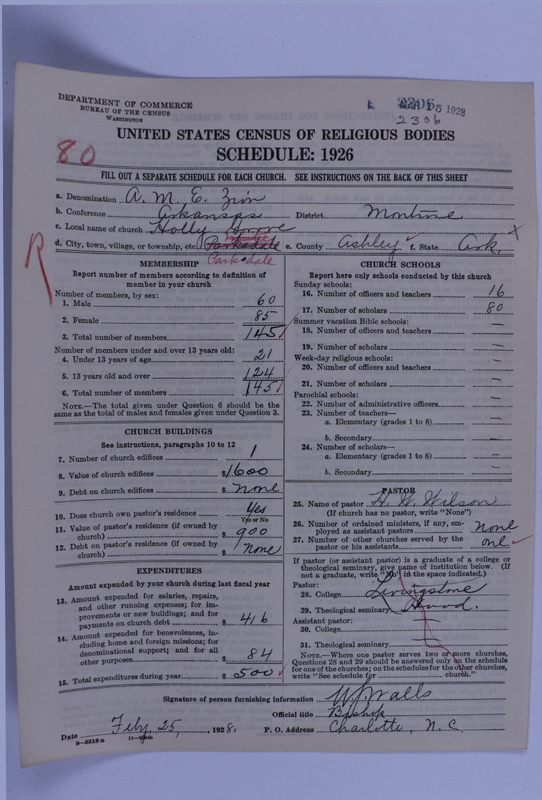 DEPARTMENT OF COMMERCE
BUREAU OF THE CENSUS
WASHINGTON
2306
1928
2306
UNITED STATES CENSUS OF RELIGIOUS BODIES
SCHEDULE: 1926
80
FILL OUT A SEPARATE SCHEDULE FOR EACH CHURCH. SEE INSTRUCTIONS ON THE BACK OF THIS SHEET
a. Denomination A. M. E. Zion
b. Conference Arkansas District
c. Local name of church Holly
d. City, town, village, or township, etc. Parksdale e. County Ashley f. State Ark.
Parkdale
R
MEMBERSHIP
Report number of members according to definition of
member in your church
Number of members, by sex:
1. Male 60
2. Female 85
3. Total number of members 145
Number of members under and over 13 years old:
4. Under 13 years of age 21
5. 13 years old and over 124
6. Total number of members 145
NOTE.—The total given under Question 6 should be
same as the total of males and females given under Question 3.
CHURCH BUILDINGS
See instructions, paragraphs 10 to 12
7. Number of church edifices 1
8. Value of church edifices $1600
9. Debt on church edifices $ none
10. Does church own pastor's residence yes
Yes or No
11. Value of pastor's residence (if owned by
church) $ 900
12. Debt on pastor's residence (if owned by
church) $ none
EXPENDITURES
Amount expended by your church during last fiscal year
13. Amount expended for salaries, repairs,
and other running expenses; for im-
provements or new buildings; and for
payments on church debt $ 416
14. Amount expended for benevolences, in-
cluding home and foreign missions; for
denominational support; and for all
other purposes $ 84
15. Total expenditures during year $ 500
CHURCH SCHOOLS
Report here only schools conducted by this church
Sunday schools:
16. Number of officers and teachers 16
17. Number of scholars 80
Summer vacation Bible schools:
18. Number of officers and teachers —
19. Number of scholars —
Week-day religious schools:
20. Number of officers and teachers —
21. Number of scholars —
Parochial schools:
22. Number of administrative officers —
23. Number of teachers—
a. Elementary (grades 1 to 8) —
b. Secondary —
24. Number of scholars—
a. Elementary (grades 1 to 8) —
b. Secondary —
PASTOR
25. Name of pastor H. W. Wilson
(If church has no pastor, write "None")
26. Number of ordained ministers, if any, em-
ployed as assistant pastors none
27. Number of other churches served by the
pastor or his assistants one
If pastor (or assistant pastor) is a graduate of a college or
theological seminary, give name of institution below. (If
not a graduate, write "No" in the space indicated.)
Pastor:
28. College Livingstone
29. Theological seminary Hood.
Assistant pastor:
30. College
31. Theological seminary
NOTE.—Where one pastor serves two or more churches,
Questions 28 and 29 should be answered only on the schedule
for one of the churches; on the schedules for the other churches,
write "See schedule for church."
Signature of person furnishing information W J Walls
Official title Bishop
Date Feby. 25, 1928. P. O. Address Charlotte, N. C.